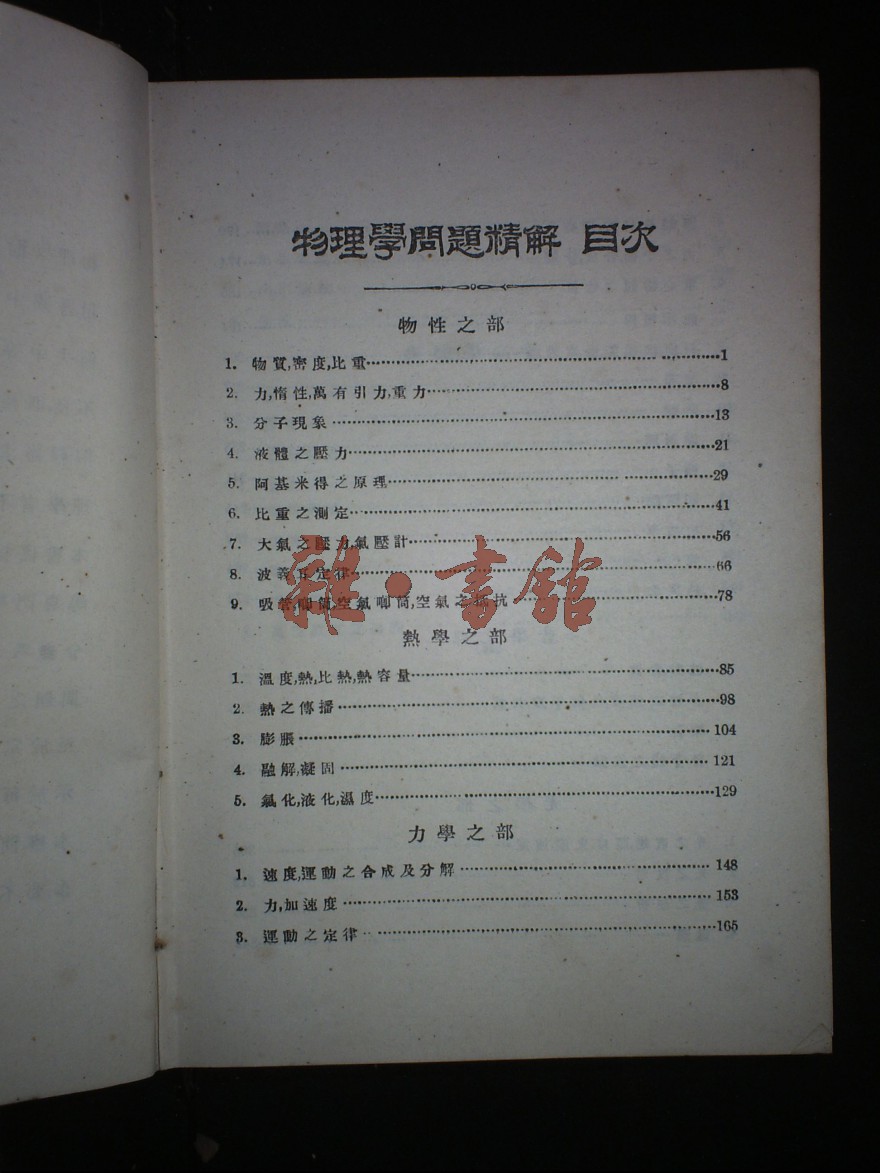 物理學問題精解 目次
物性之部
1. 物質,密度,比重……1
2. 力,惰性,萬有引力,重力……8
3. 分子現象……13
4. 液體之壓力……21
5. 阿基米得之原理……29
6. 比重之測定……41
7. 大氣之壓力,氣壓計……56
8. 波義耳定律……66
9. 吸管,唧筒,空氣唧筒,空氣之抵抗……78
雜·書館
熱學之部
1. 溫度,熱,比熱,熱容量……85
2. 熱之傳播……98
3. 膨脹……104
4. 融解,凝固……121
5. 氣化,液化,濕度……129
力學之部
1. 速度,運動之合成及分解……148
2. 力,加速度……153
3. 運動之定律……165